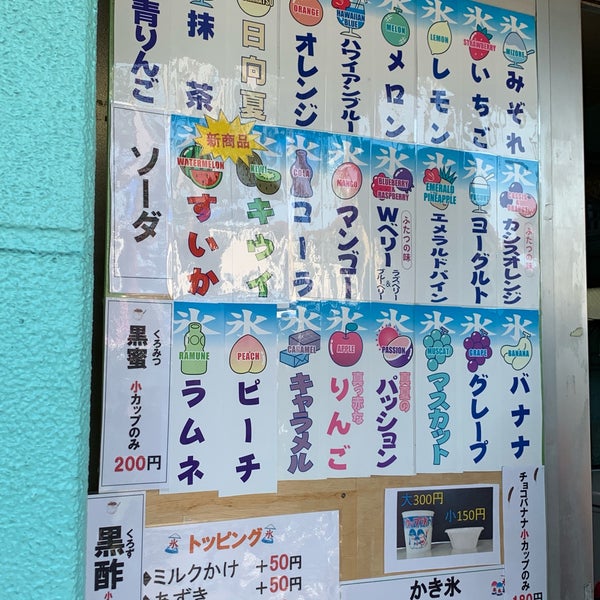 氷 みぞれ MIZORE
氷 いちご STRAWBERRY
氷 レモン LEMON
氷 メロン MELON
ハワイアンブルー HAWAIIAN BLUE
オレンジ ORANGE
日向夏
抹茶
青りんご
氷 カシスオレンジ ふたつの味
氷 ヨーグルト
氷 エメラルドパイン EMERALD PINEAPPLE
氷 Wベリー ふたつの味 ラズベリー&ブルーベリー BLUEBERRY & RASPBERRY
氷 マンゴー MANGO
氷 コーラ COLA
キウイ KIWI
新商品
氷 すいか WATERMELON
ソーダ
氷 バナナ BANANA
氷 グレープ GRAPE
氷 マスカット MUSCAT
氷 真夏のパッション PASSION
氷 真っ赤なりんご APPLE
氷 キャラメル CARAMEL
氷 ピーチ PEACH
氷 ラムネ RAMUNE
黒蜜 くろみつ
小カップのみ
200円
黒酢 くろず
小
氷 トッピング 氷
ミルクかけ +50円
あずき +50円
大300円
小150円
かき氷
チョコバナナ小カップのみ
180円